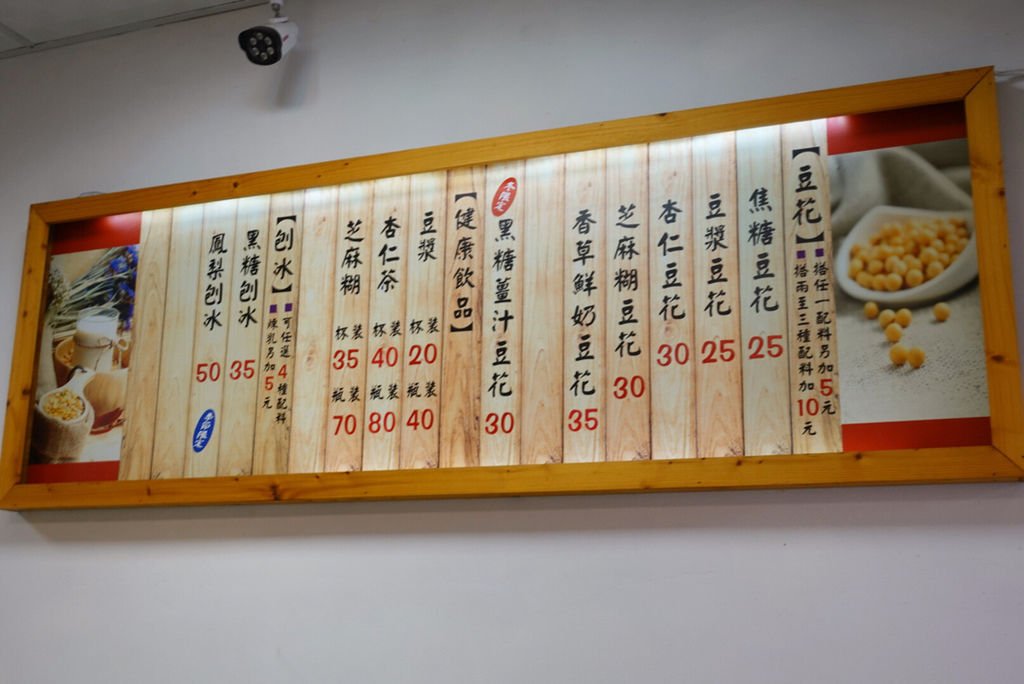 【豆花】
■搭任一配料另加5元
■搭兩至三種配料加10元
焦糖豆花 25
豆漿豆花 25
杏仁豆花 30
芝麻糊豆花 30
香草鮮奶豆花 35
冬限定 黑糖薑汁豆花 30
【健康飲品】
豆漿 杯裝20 瓶裝40
杏仁茶 杯裝40 瓶裝80
芝麻糊 杯裝35 瓶裝70
【刨冰】
■可任選4種配料
■煉乳另加5元
黑糖刨冰 35
鳳梨刨冰 50
限定